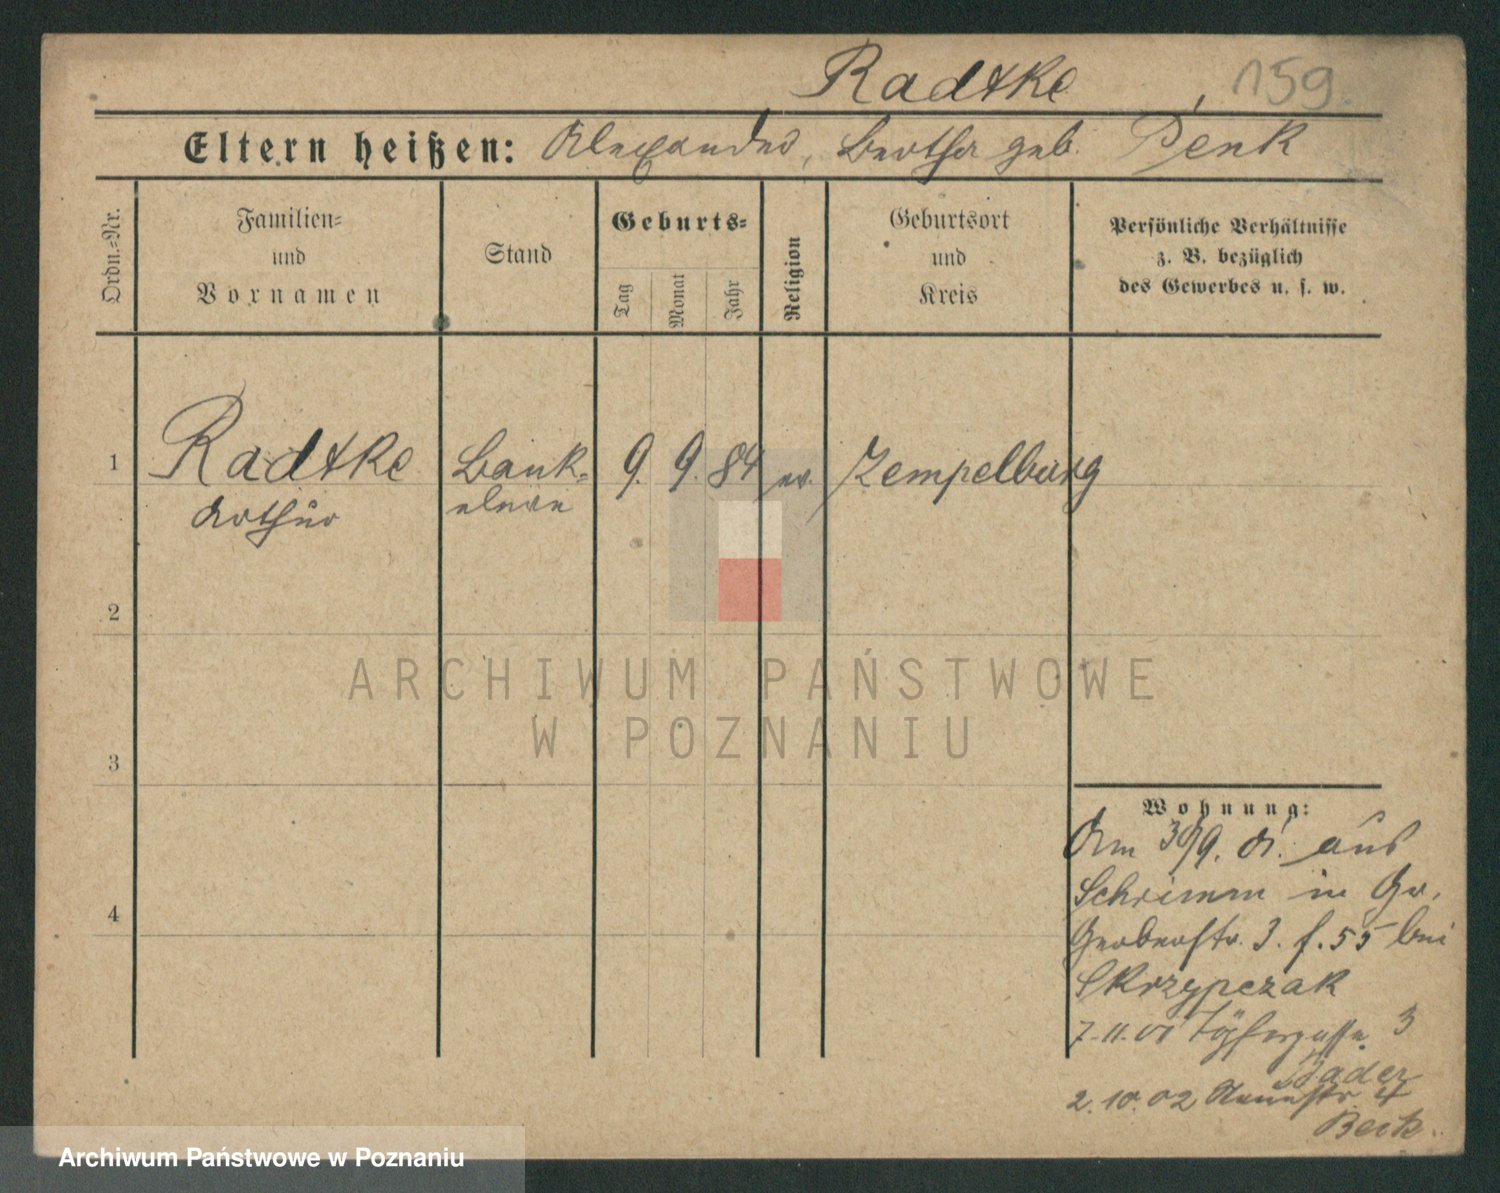 Radtke, 159.
Eltern heißen: Alexander, Bertha geb. Penk
Ordn.-Nr.
Familien-
und
Vornamen
Stand
Geburts-
Tag
Monat
Jahr
Religion
Geburtsort
und
Kreis
Persönliche Verhältnisse
z. B. bezüglich
des Gewerbes u. s. w.
1 Radtke Bank- 9. 9. 84 ev. Zempelburg
Arthur eleve
2
3
4
Wohnung:
Am 30/9. 01. aus
Schrimm in Gr.
Gerberstr. 3. f. 55 bei
Skrzypczak
7.11.01 Töpfergasse 3
Bader
2.10.02 4
Beck.
ARCHIWUM PAŃSTWOWE
W POZNANIU
Archiwum Państwowe w Poznaniu